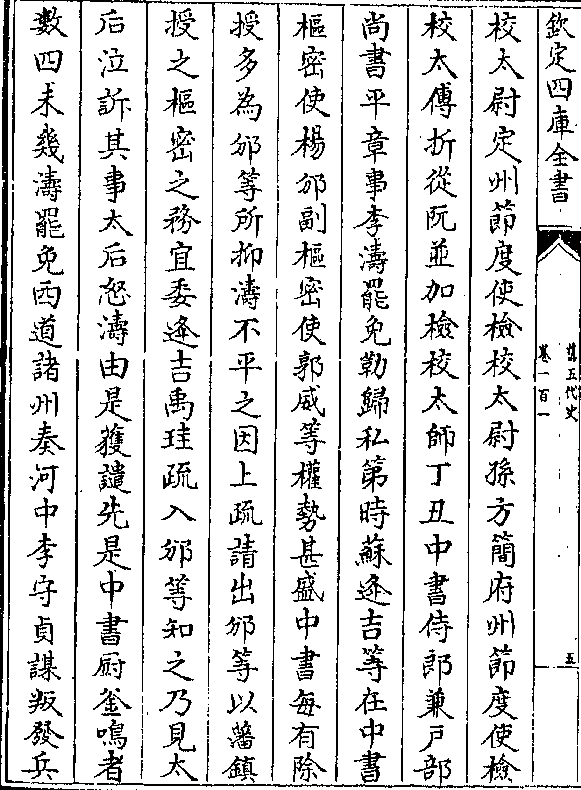 欽定四庫全書
舊五代史
卷一百一
五
校太尉定州節度使檢校太尉孫方簡府州節度使檢
校太傅折從阮並加檢校太師丁丑中書侍郎兼戶部
尚書平章事李濤罷免勒歸私第時蘇逢吉等在中書
樞密使楊邠副樞密使郭威等權勢甚盛中書每有除
授多為邠等所抑濤不平之因上疏請出邠等以藩鎮
授之樞密之務宜委逢吉禹珪疏入邠等知之乃見太
后泣訴其事太后怒濤由是獲譴先是中書厨釜鳴者
數四未幾濤罷免西道諸州奏河中李守貞謀叛發兵